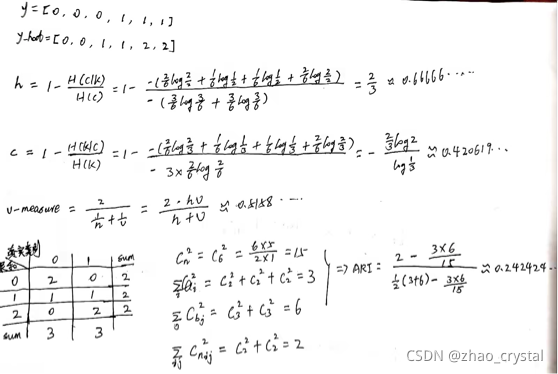 y = [0, 0, 0, 1, 1, 1]
y_hat = [0, 0, 1, 1, 2, 2]
h = 1 - H(c|k)/H(c) = 1 - -(2/6 log 2/2 + 1/6 log 1/2 + 1/6 log 1/2 + 2/6 log 2/2) / -(3/6 log 3/6 + 3/6 log 3/6) = 2/3 ≈ 0.66666.....
c = 1 - H(k|c)/H(k) = 1 - -(2/6 log 2/3 + 1/6 log 1/3 + 1/6 log 1/3 + 2/6 log 2/3) / -3×2/6 log 2/6 = - 2/3 log 2 / log 1/3 ≈ 0.420619...
v-measure = 2 / (1/h + 1/v) = 2·hv / h+v ≈ 0.5158....
真实类别 0 1 sum
0 2 0 2
1 1 1 2
2 0 2 2
sum 3 3
C_n^2 = C_6^2 = 6×5 / 2×1 = 15
∑ C_ai^2 = C_2^2 + C_2^2 + C_2^2 = 3
∑ C_bj^2 = C_3^2 + C_3^2 = 6
∑ij C_nij^2 = C_2^2 + C_2^2 = 2
=> ARI = (2 - 3×6/15) / (1/2(3+6) - 3×6/15) ≈ 0.242424...
CSDN @zhao_crystal